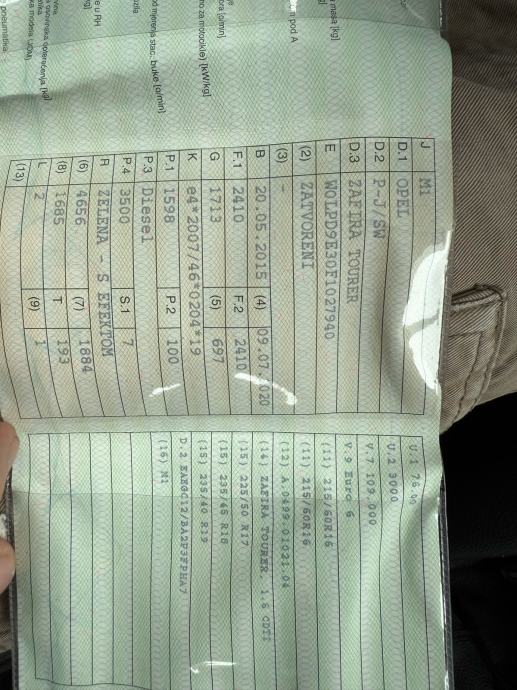 masa [kg]
pod A
no za motocikle) [kW/kg]
stac. buke [o/min]
u RH
pneumatika
J M1
D.1 OPEL
D.2 P-J/SW
D.3 ZAFIRA TOURER
E W0LPD9E30F1027940
(2) ZATVORENI
(3) -
B 20.05.2015 (4) 09.07.2020
F.1 2410 F.2 2410
G 1713 (5) 697
K e4*2007/46*0204*19
P.1 1598 P.2 100
P.3 Diesel
P.4 3500 S.1 7
R ZELENA - S EFEKTOM
(6) 4656 (7) 1884
(8) 1685 T 193
L 2 (9) 1
(13)
U.1 76.00
U.2 3000
V.7 109.000
V.9 Euro 6
(11) 215/60R16
(11) 215/60R16
(12) A.0499.01021.04
(14) ZAFIRA TOURER 1.6 CDTI
(15) 225/50 R17
(15) 235/45 R18
(15) 235/40 R19
(16) M1